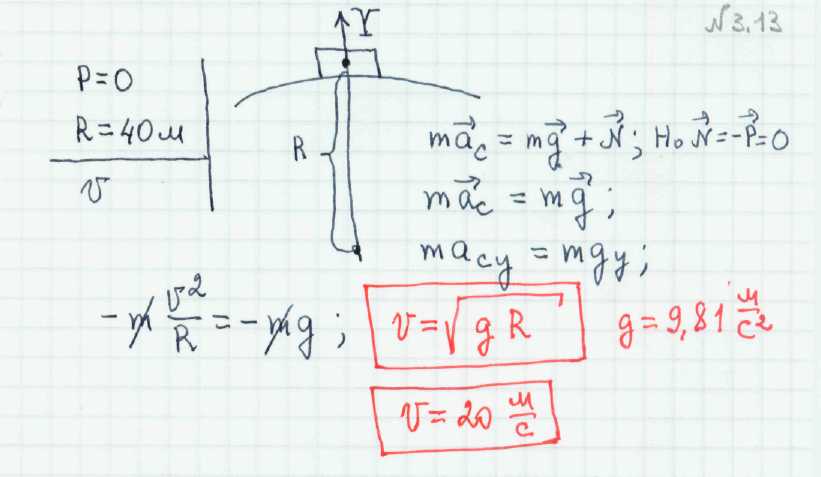 N3.13
Y
P=0
R=40м
v
R
ma⃗c = mg⃗ + N⃗; Но N⃗=-P⃗=0
ma⃗c = mg⃗;
macy = mgy;
-m v²/R = -mg; v=√gR g=9,81 м/с²
v=20 м/с